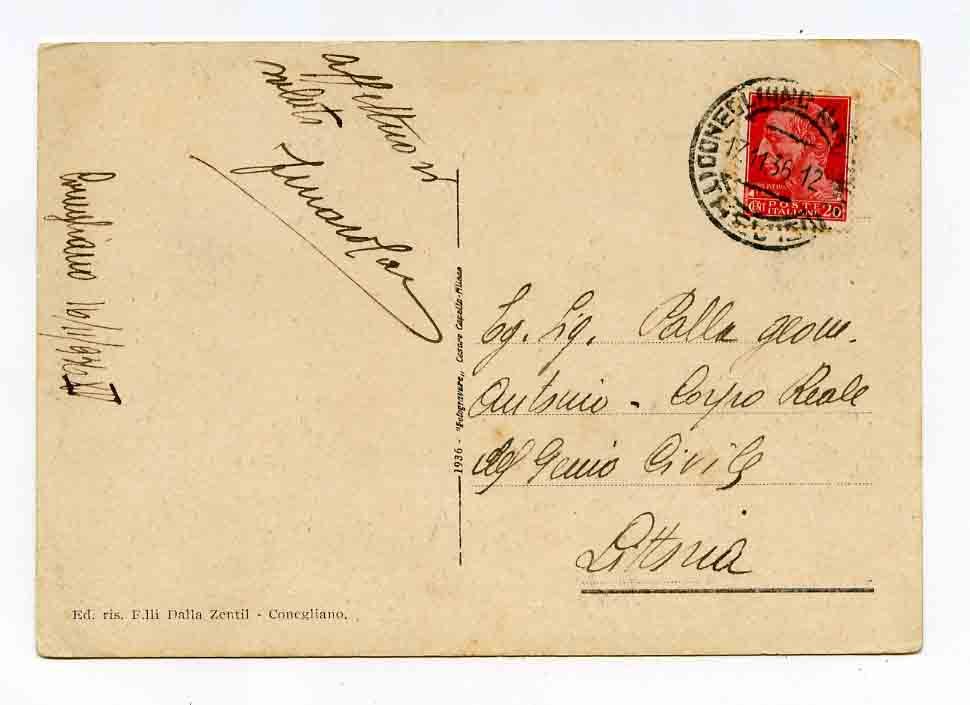 affettuosi
saluti
Conegliano 16/11/936 XV
CONEGLIANO
17.11.36.12
POSTE
ITALIANE
CENT 20
Eg. Sig. Palla geom.
Antonio - Corpo Reale
del Genio Civile
Littoria
1936 - "Fotogravure„ Cesare Capello - Milano
Ed. ris. F.lli Dalla Zentil - Conegliano.